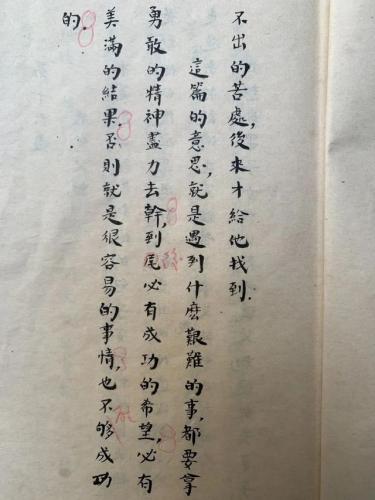 不出的苦處，後來才給他找到.
這篇的意思，就是遇到什麽艱難的事，都要拿
勇敢的精神盡力去幹，到尾必有成功的希望，必有
美滿的結果.否則就是很容易的事情，也不够成功
的.